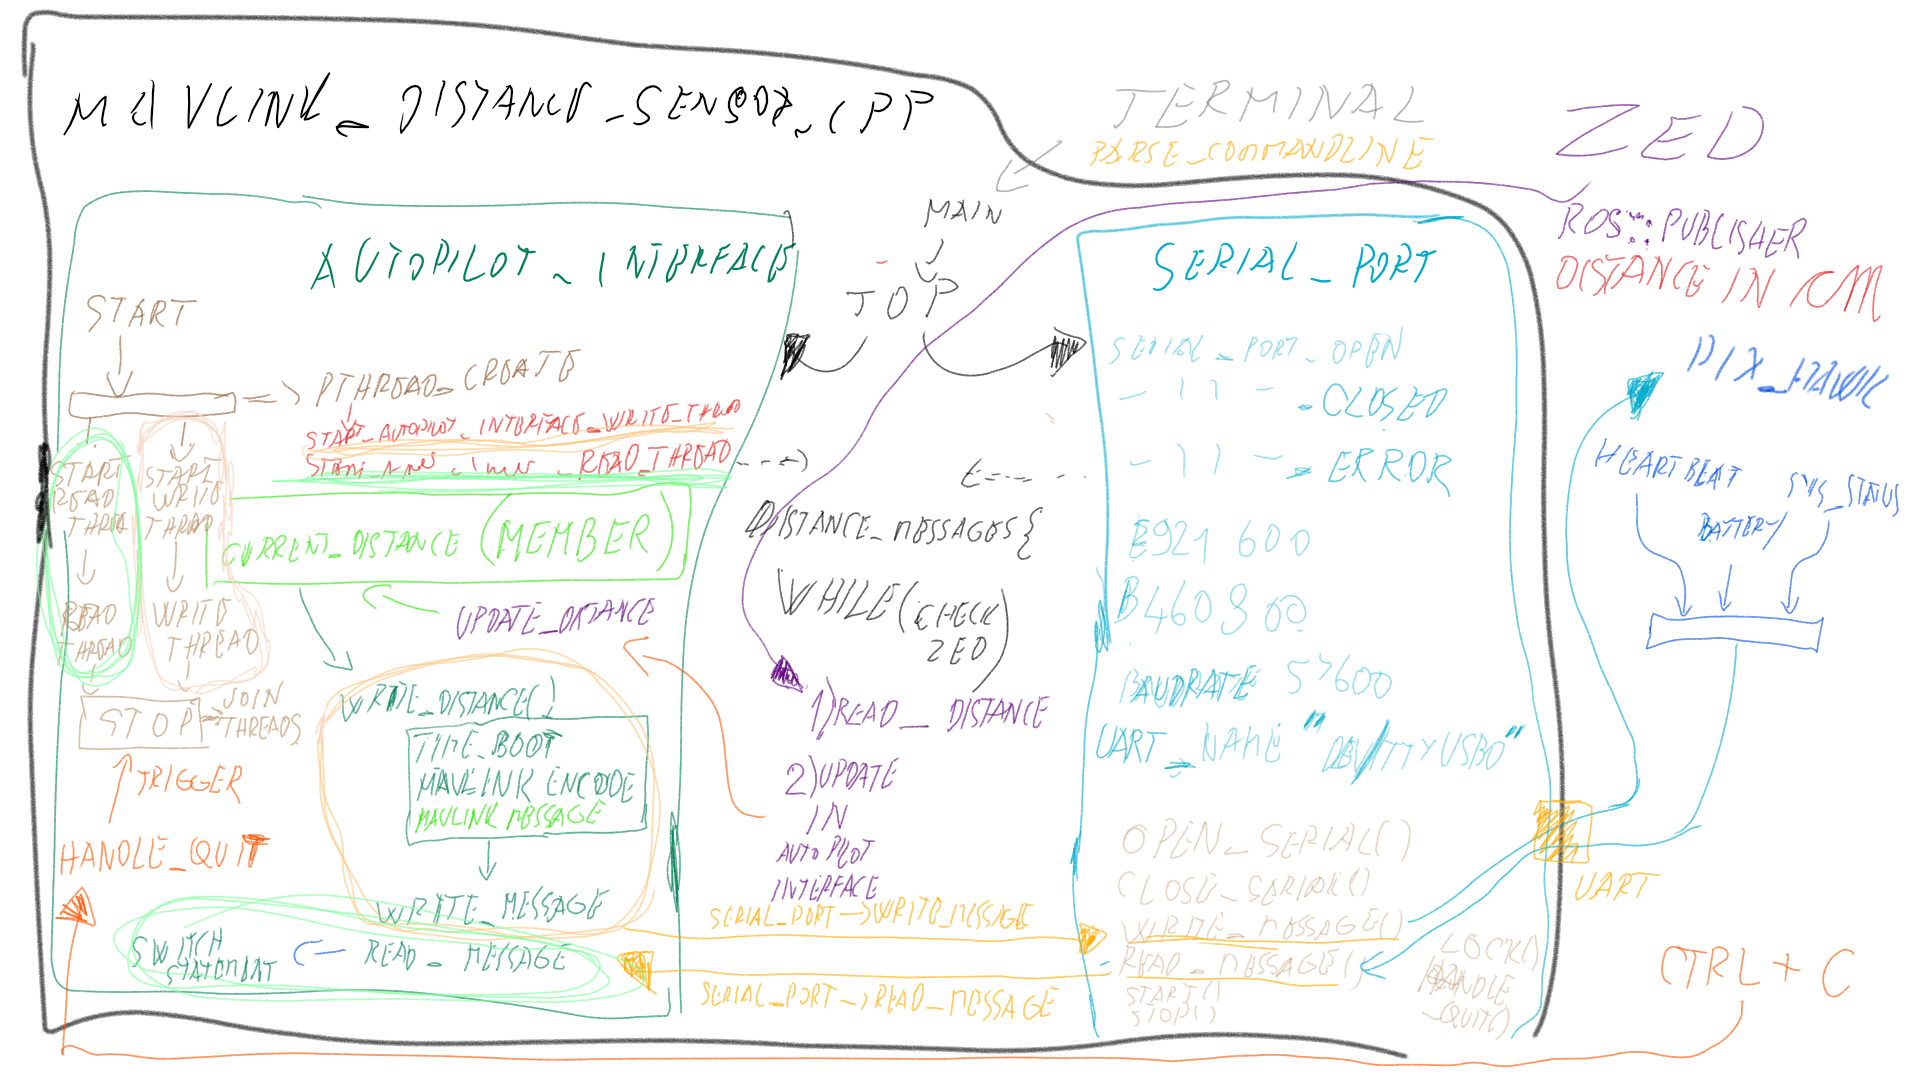 MAVLINK_DISTANCE_SENSOR_CPP
TERMINAL
PARSE_COMMANDLINE
ZED
ROS::PUBLISHER
DISTANCE IN CM
MAIN
TOP
AUTOPILOT_INTERFACE
START
=> PTHREAD_CREATE
START_AUTOPILOT_INTERFACE_WRITE_THREAD
READ_THREAD
START
READ
THREAD
START
WRITE
THREAD
READ
THREAD
WRITE
THREAD
CURRENT_DISTANCE (MEMBER)
UPDATE_DISTANCE
STOP
JOIN
THREADS
TRIGGER
HANDLE_QUIT
WRITE_DISTANCE()
TIME_BOOT
MAVLINK ENCODE
MAVLINK MESSAGE
WRITE_MESSAGE
READ_MESSAGE
SWITCH
STATEMENT
DISTANCE_MESSAGES{
WHILE(CHECK
ZED)
1)READ_DISTANCE
2)UPDATE
IN
AUTOPILOT
INTERFACE
SERIAL_PORT->WRITE_MESSAGE
SERIAL_PORT->READ_MESSAGE
SERIAL_PORT
SERIAL_PORT_OPEN
- 11 - _CLOSED
- 11 - _ERROR
B921 600
B460800
BAUDRATE 57600
UART_NAME "DEV/TTYUSB0"
OPEN_SERIAL()
CLOSE_SERIAL()
WRITE_MESSAGE()
READ_MESSAGE()
START()
STOP()
LOCK()
HANDLE
_QUIT()
PIX_HAWK
HEARTBEAT
BATTERY
SYS_STATUS
UART
CTRL + C